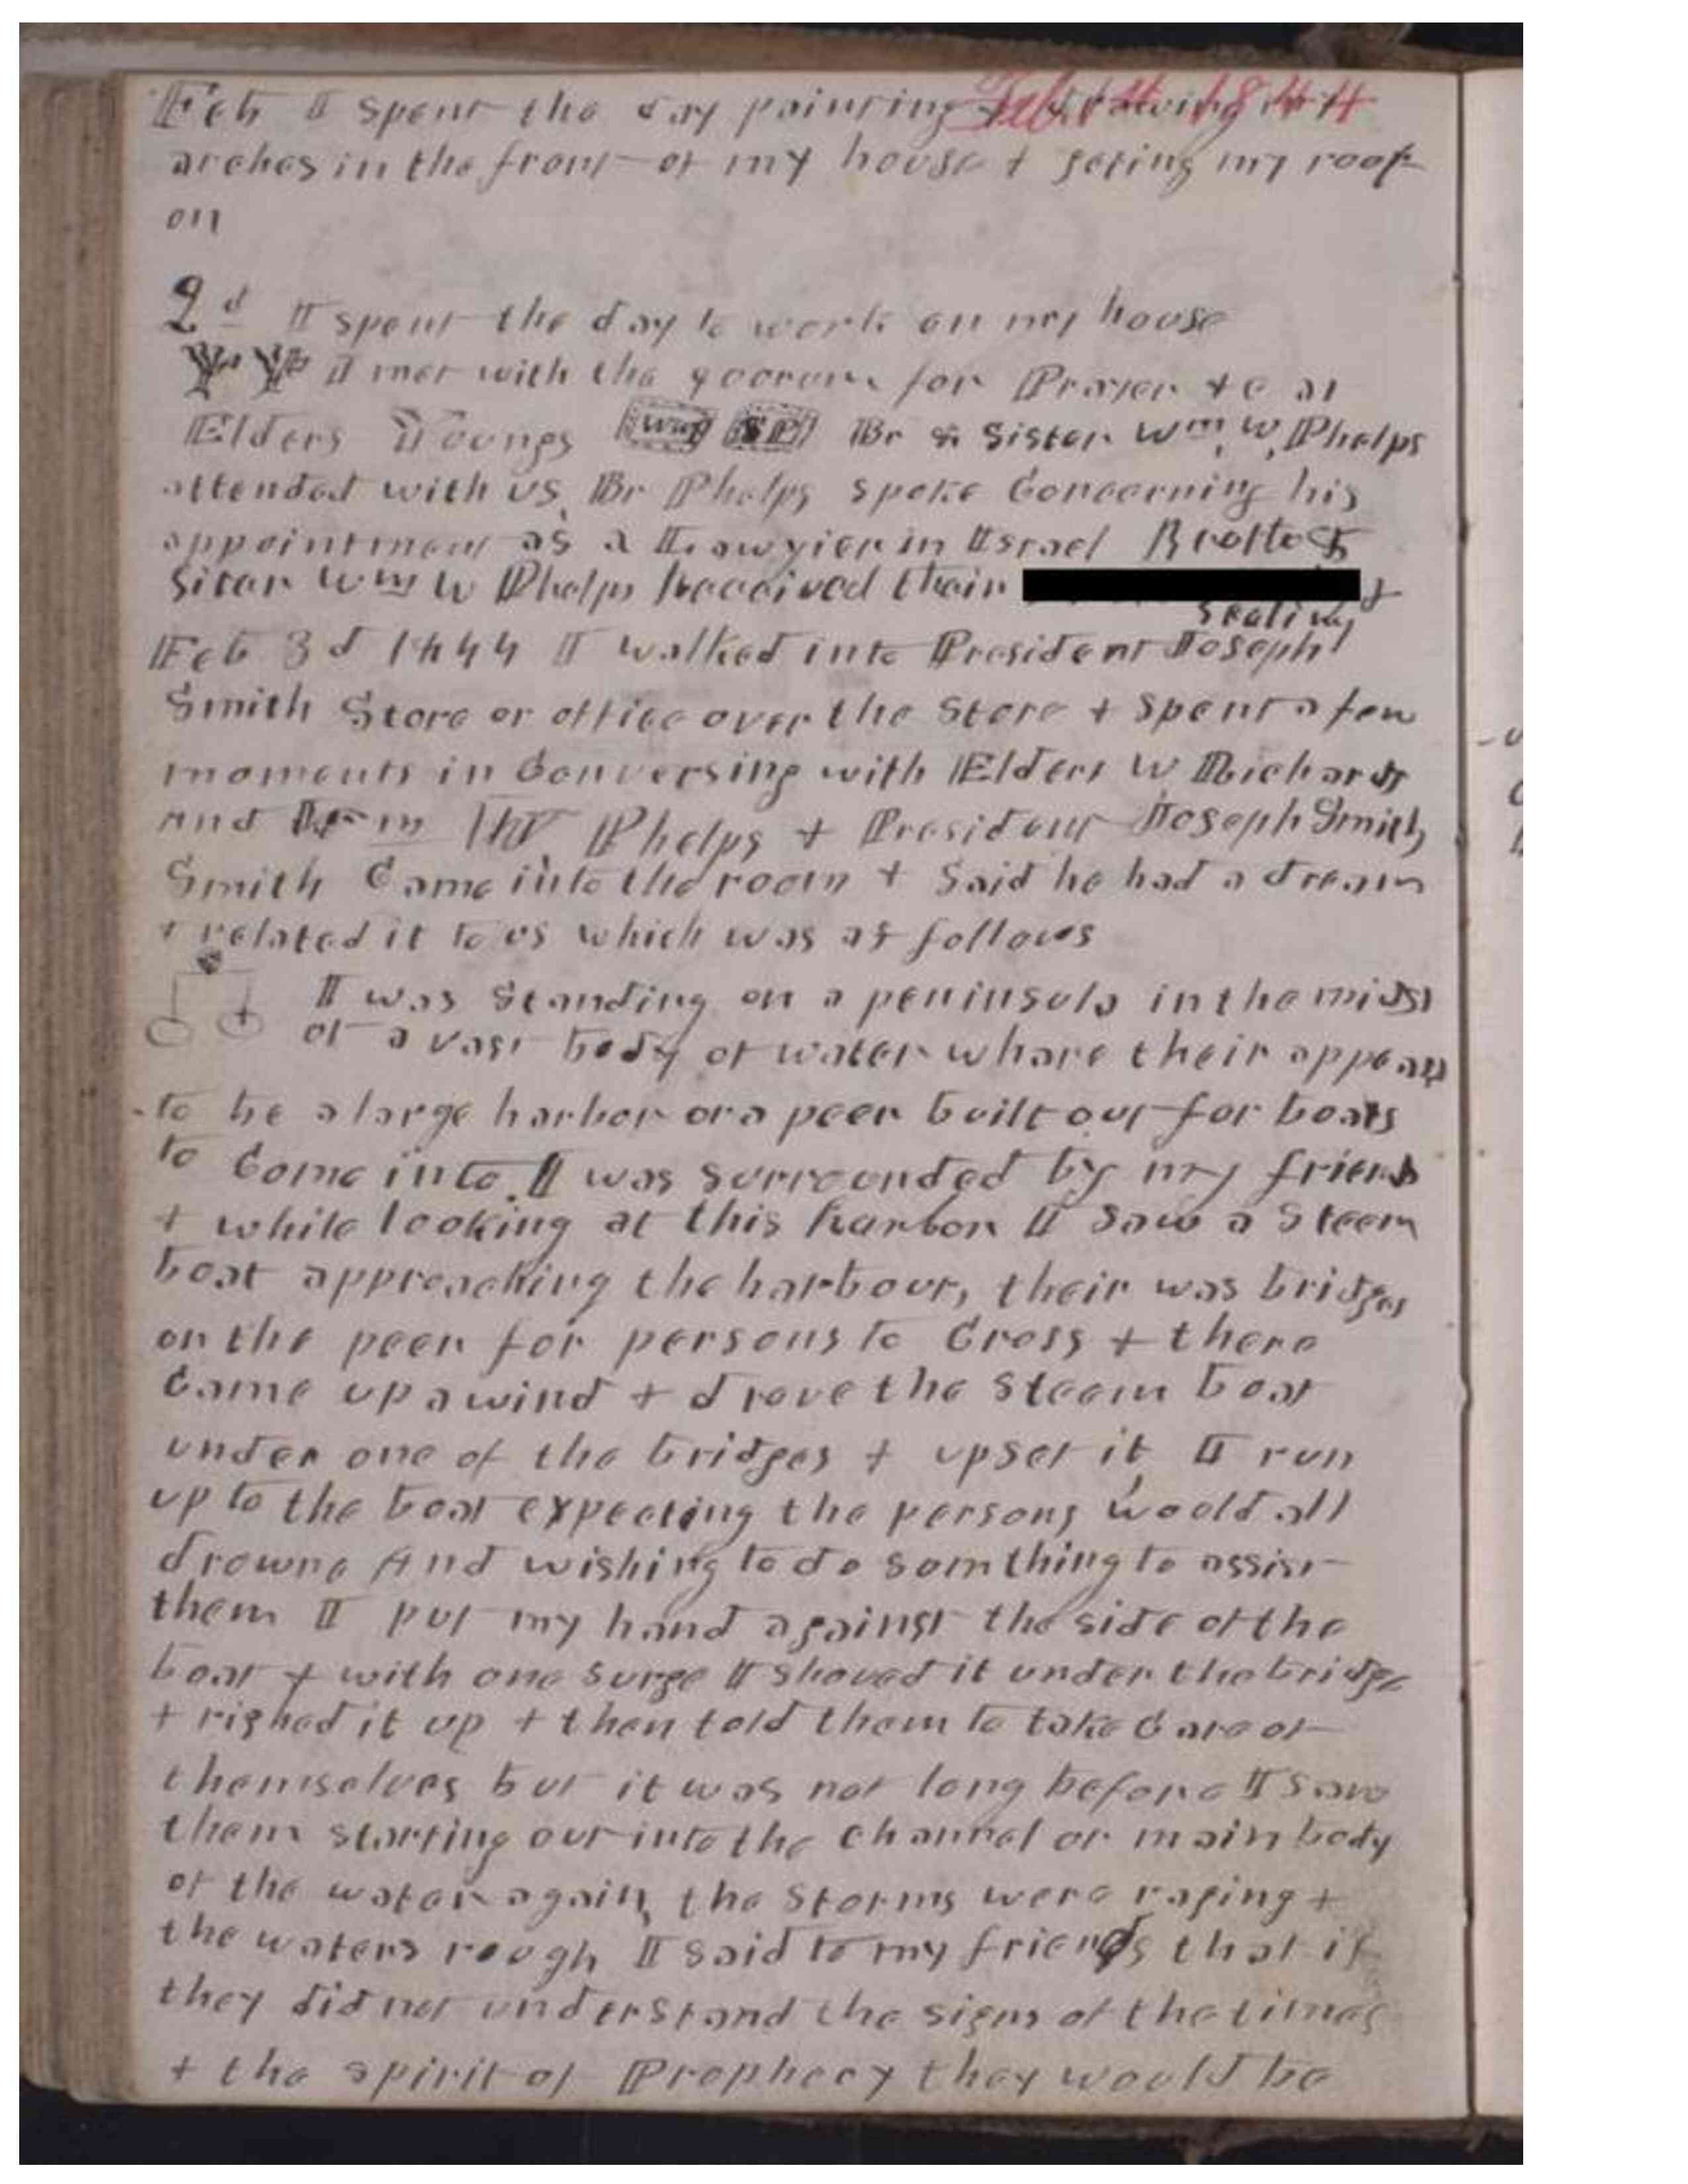 Feb I spent the day painting + drawing my
Feb. 1844
arches in the front of my house + seting my roof
on
2d I spent the day to work on my house
I met with the quorum for Prayer &c at
Elders Youngs WWP SP Br & Sister Wm. W, Phelps
attended with us, Br Phelps spoke Concerning his
appointment as a Lawyier in Israel
Sister Wm W Phelps Received their
Sealing +
Feb 3d 1844 I walked into President Joseph
Smith Store or office over the Store + spent a few
moments in Conversing with Elders W Richards
and Wm W Phelps + President Joseph Smith
Smith Came into the room + Said he had a dream
+ related it to us which was as follows
I was Standing on a peninsula in the midst
of a vast body of water whare their appears
to be a large harbor or a peer built out for boats
to Come into. I was surrounded by my friends
+ while looking at this harbor I saw a Steem
boat approaching the harbour, their was bridges
on the peer for persons to Cross + there
Came up a wind + drove the Steem boat
under one of the bridges + upset it, I run
up to the boat expecting the persons would all
drowne And wishing to do somthing to assist
them I put my hand against the side of the
boat + with one surge I shoved it under the bridge
+ righed it up + then told them to take Care of
themselves but it was not long before I saw
them starting out into the channel or main body
of the water again, the Storms were raging +
the waters rough I said to my friends that if
they did not understand the signs of the times
+ the spirit of Prophecy they would be